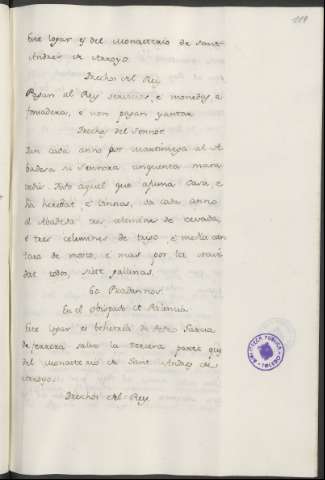 119
Este logar es del monasterio de Sant
Andres de Arroyo.
Drechos del Rey
Pagan al Rey servicios, e monedas e
fonsadera, e non pagan yantar
Drechos del Sennor
Dan cada anno por martiniega al A
badesa su Sennora cinquenta mara
vedis. Todo aquel que afuma Casa, e
ha heredat e vinnas, da cada anno
al Abadesa tres celemines de cevada,
e tres celemines de trigo, e media can
tara de mosto, e mas por la
dat todos, siete gallinas.
60 Pradannos
En el obispado de Palencia
Este logar es behetria de Pero Garcia
de ferrera salvo la tercera parte que es
del monasterio de Sant Andres de
Arroyo.
Drechos del Rey
BIBLIOTECA PUBLICA
TOLEDO